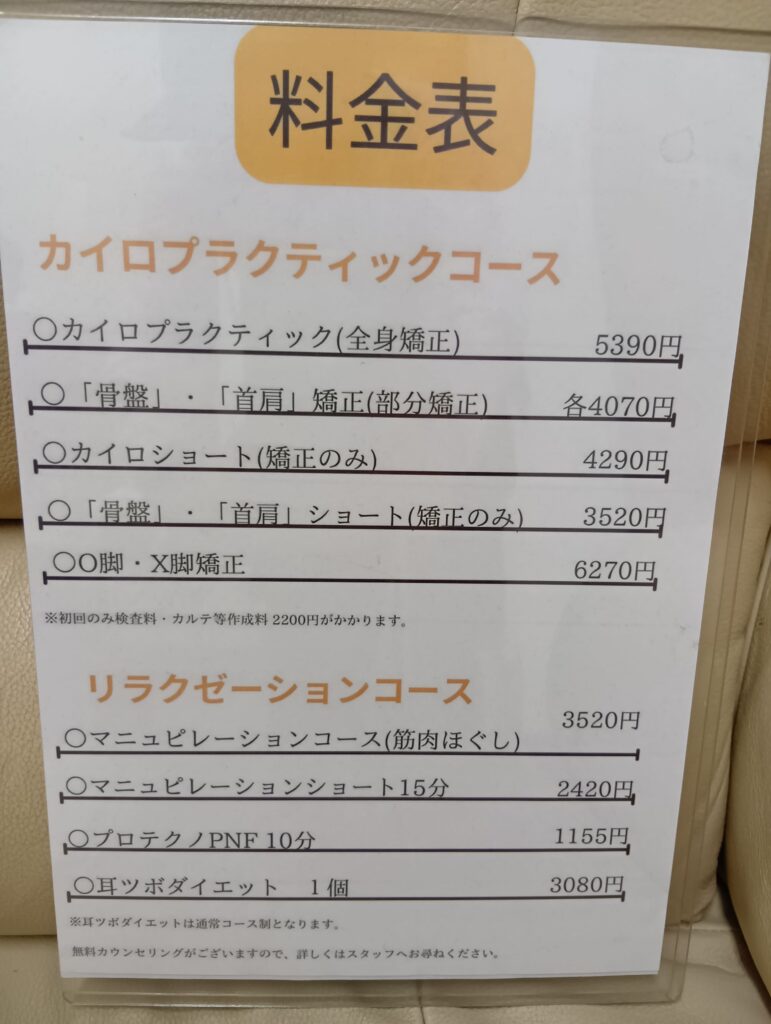 料金表
カイロプラクティックコース
〇カイロプラクティック(全身矯正) 5390円
〇「骨盤」・「首肩」矯正(部分矯正) 各4070円
〇カイロショート(矯正のみ) 4290円
〇「骨盤」・「首肩」ショート(矯正のみ) 3520円
〇O脚・X脚矯正 6270円
※初回のみ検査料・カルテ等作成料 2200円がかかります。
リラクゼーションコース
〇マニュピレーションコース(筋肉ほぐし) 3520円
〇マニュピレーションショート15分 2420円
〇プロテクノPNF 10分 1155円
〇耳ツボダイエット　1個 3080円
※耳ツボダイエットは通常コース制となります。
無料カウンセリングがございますので、詳しくはスタッフへお尋ねください。